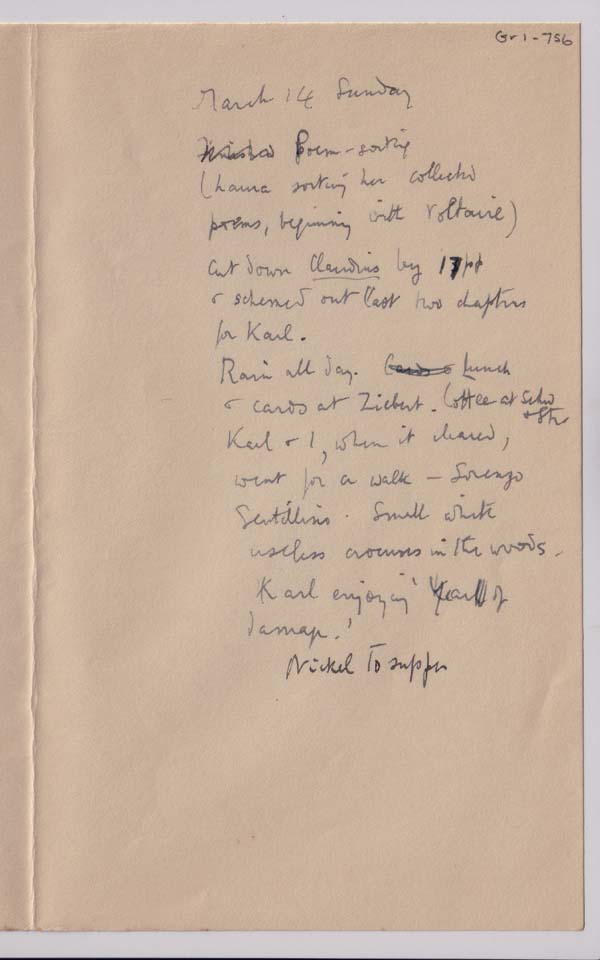 Gr1-756
March 14 Sunday
Poem-sorting
(Laura sorting her collected
poems, beginning with Voltaire)
Cut down Claudius by 17pp
& schemed out last two chapters
for Karl.
Rain all day. Cards & Lunch
& cards at Ziebert. Coffee at Schw
& Str
Karl & I, when it cleared,
went for a walk – Sorengo
Gentilino. Small white
useless crocuses in the woods.
Karl enjoying 'Years of
damage.'
Nickel to supper